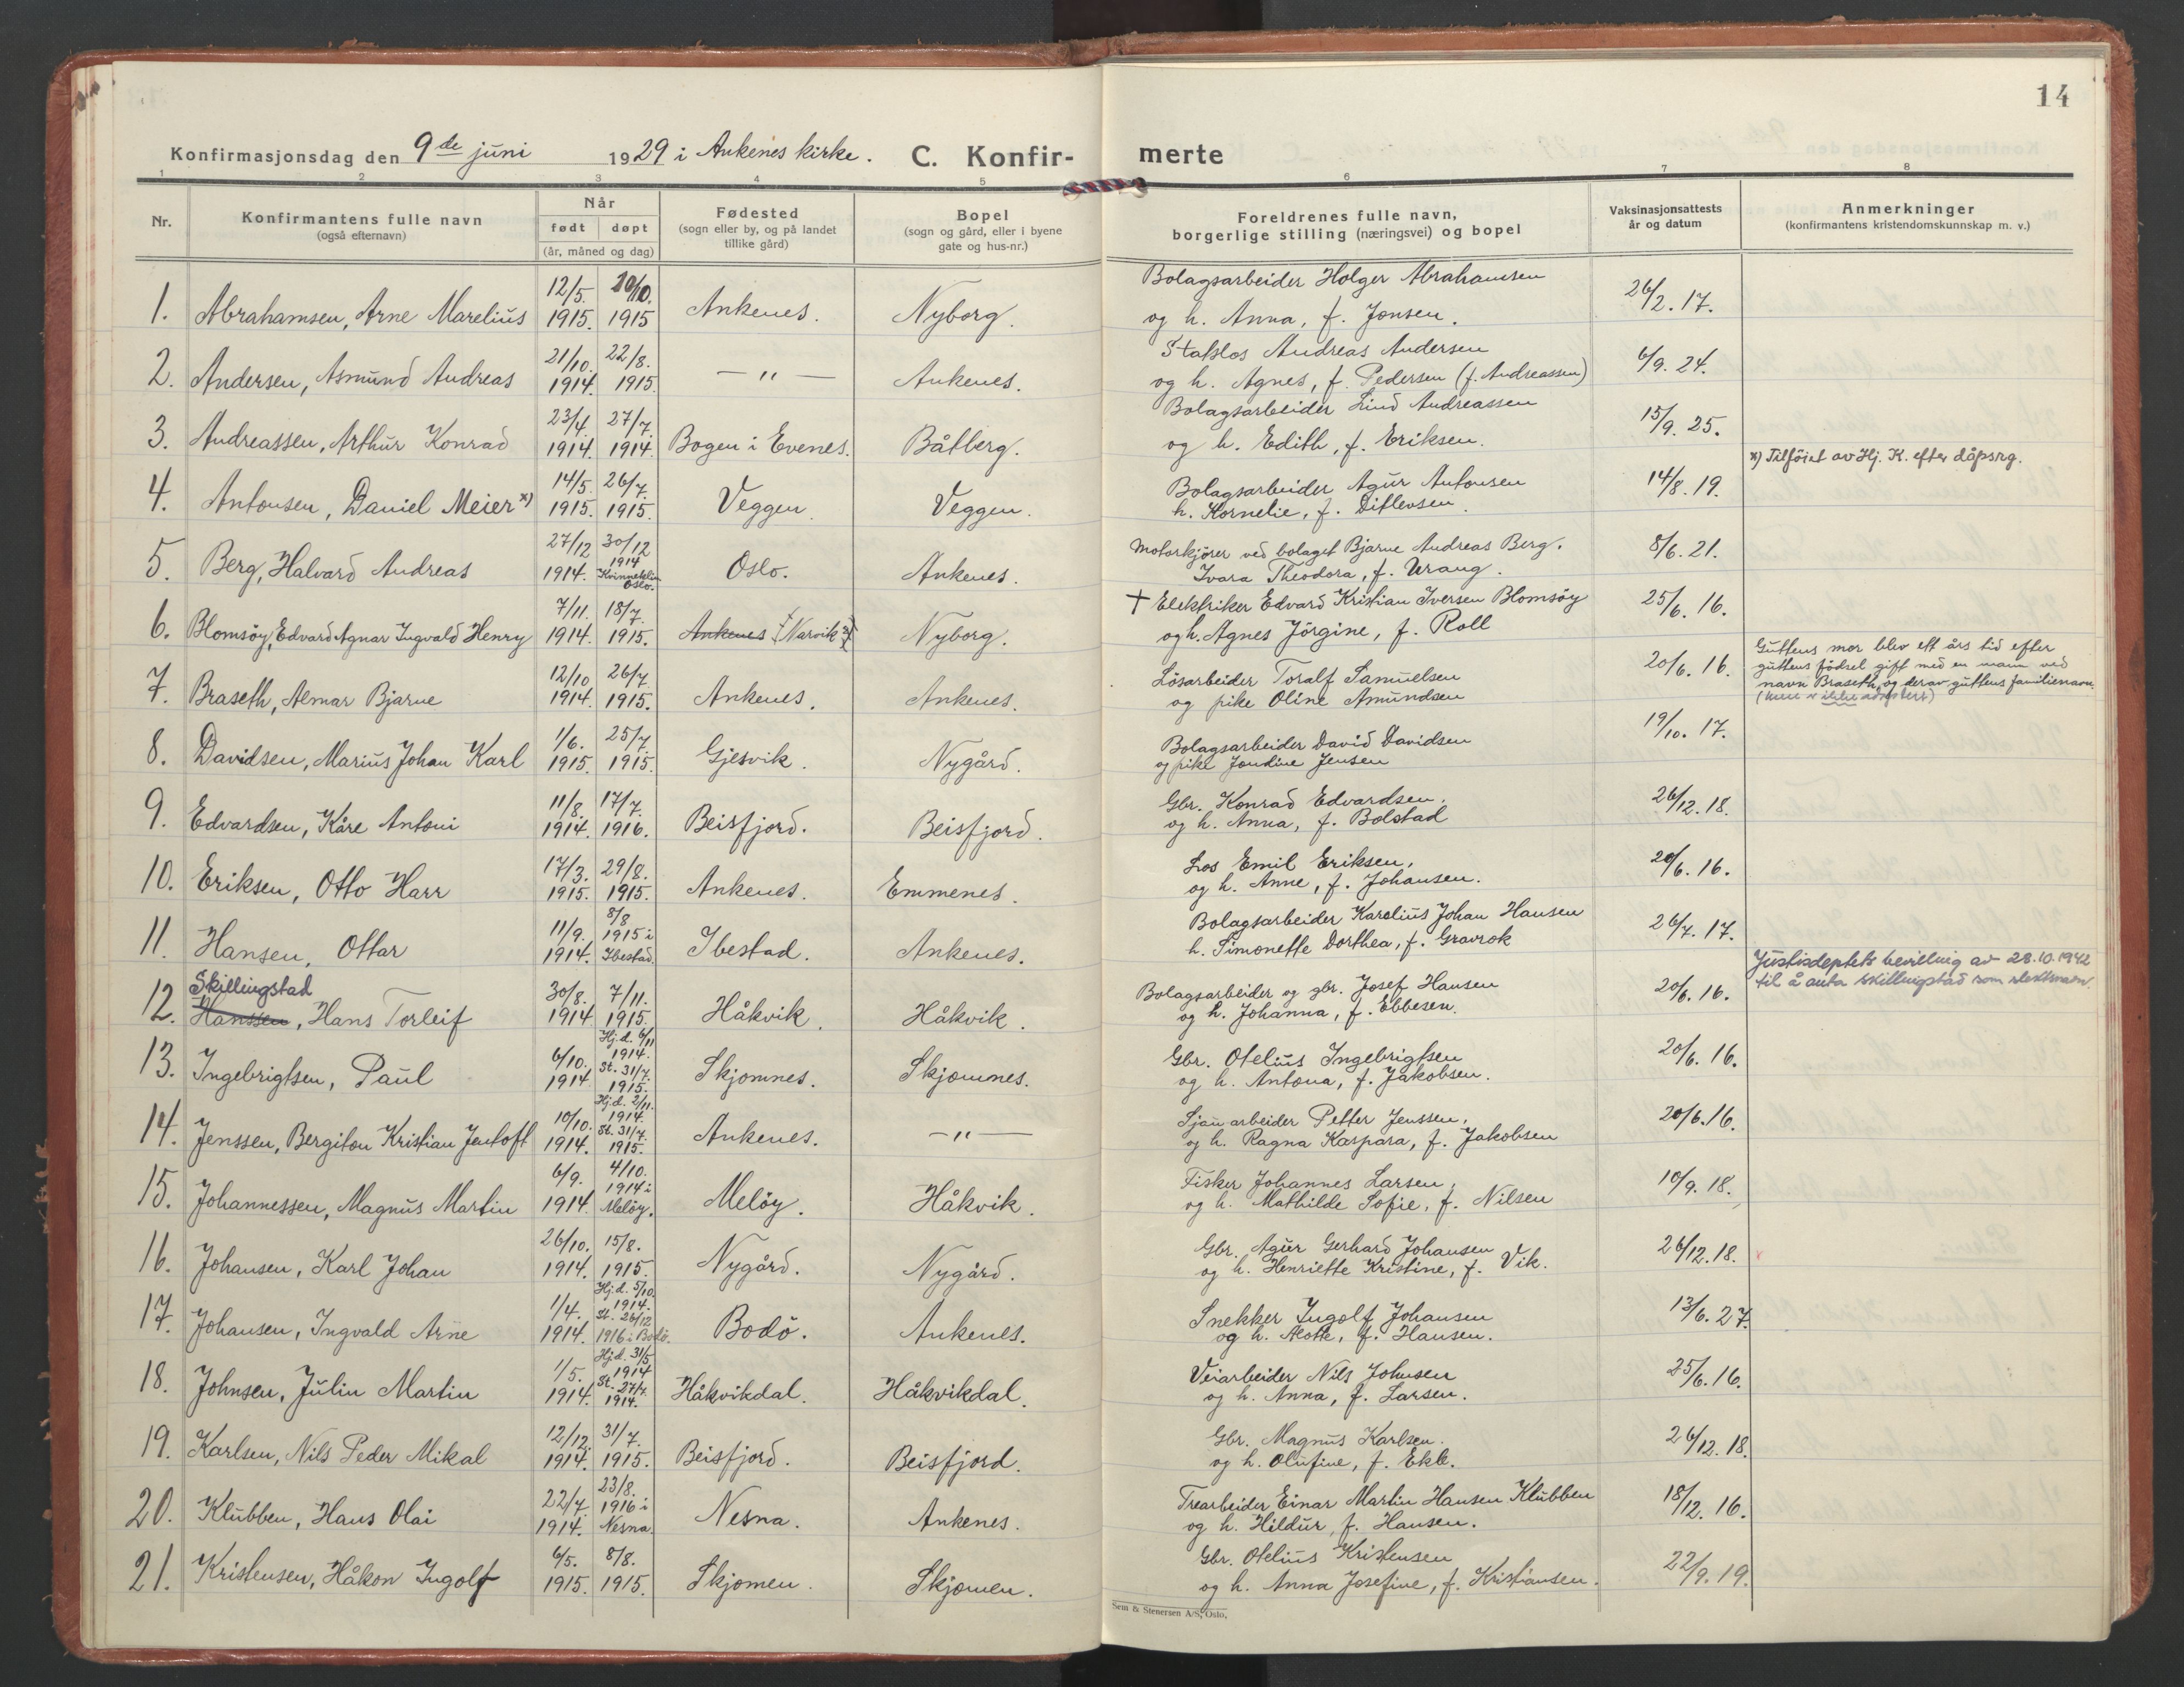 14
Konfirmasjonsdag den 9de juni 1929 i Ankenes kirke. C. Konfir- merte
1 2 3 4 5 6 7 8
Nr. Konfirmantens fulle navn (også efternavn) Når født døpt (år, måned og dag) Fødested (sogn eller by, og på landet tillike gård) Bopel (sogn og gård, eller i byene gate og hus-nr.) Foreldrenes fulle navn, borgerlige stilling (næringsvei) og bopel Vaksinasjonsattests år og datum Anmerkninger (konfirmantens kristendomskunnskap m. v.)
1. Abrahamsen, Arne Marelius 12/5. 1915. 10/10. 1915 Ankenes. Nyborg. Bolagsarbeider Holger Abrahamsen og h. Anna, f. Jonsen. 26/2. 17.
2. Andersen, Asmund Andreas 21/10. 1914. 22/8. 1915. — " — Ankenes. Statslos Andreas Andersen og h. Agnes, f. Pedersen (f. Andreassen) 6/9. 24.
3. Andreassen, Arthur Konrad 23/4. 1914. 27/7. 1914. Bogen i Evenes. Båtberg. Bolagsarbeider Lind Andreassen og h. Edith, f. Eriksen. 15/9. 25.
4. Antonsen, Daniel Meier x) 14/5. 1915. 26/7. 1915. Veggen. Veggen. Bolagsarbeider Agur Antonsen h. Kornelie, f. Ditlevsen. 14/8. 19. x) Tilföiet av Hj. K. efter dåpsrg.
5. Berg, Halvard Andreas 27/12 1914. 30/12 1914 Kvinneklin Oslo. Oslo. Ankenes. Motorkjörer ved bolaget Bjarne Andreas Berg. Ivara Theodora, f. Urang. 8/6. 21.
6. Blomsöy, Edvard Agnar Ingvald Henry 7/11. 1914. 18/7. 1915. Ankenes Narvik Nyborg. † Elektriker Edvard Kristian Iversen Blomsöy og h. Agnes Jörgine, f. Roll 25/6. 16.
7. Braseth, Almar Bjarne 12/10 1914. 26/7. 1915. Ankenes. Ankenes. Lösarbeider Toralf Samuelsen og pike Oline Amundsen 20/6. 16. Guttens mor blev ett års tid efter guttens födsel gift med en mann ved navn Braseth, og derav guttens familienavn. (men ikke adoptert)
8. Davidsen, Marius Johan Karl 1/6. 1915. 25/7. 1915. Gjesvik. Nygård. Bolagsarbeider David Davidsen og pike Jondine Jensen 19/10. 17.
9. Edvardsen, Kåre Antoni 11/8. 1914. 17/7. 1916. Beisfjord. Beisfjord. Gbr. Konrad Edvardsen. og h. Anna, f. Bolstad 26/12. 18.
10. Eriksen, Otto Harr 17/3. 1915. 29/8. 1915. Ankenes. Emmenes. Los Emil Eriksen, og h. Anne, f. Johansen. 20/6. 16.
11. Hansen, Ottar 11/9. 1914. 8/8 1915 i Ibestad. Ibestad. Ankenes. Bolagsarbeider Karelius Johan Hansen h. Simonette Dorthea, f. Gravrok 26/7. 17.
12. Skillingstad Hanssen, Hans Torleif 30/8. 1914 7/11. 1915. Håkvik. Håkvik. Bolagsarbeider og gbr. Josef Hansen og h. Johanna, f. Ebbesen. 20/6. 16. Justisdeptets bevilling av 28.10.1942 til å anta Skillingstad som slektsnavn.
13. Ingebrigtsen, Paul 6/10. 1914 Hj.d. 6/11 1914. St. 31/7. 1915. Skjomnes. Skjomnes. Gbr. Otelius Ingebrigtsen og h. Antona, f. Jakobsen. 20/6. 16.
14. Jenssen, Bergiton Kristian Jentoft 10/10. 1914. Hj.d. 2/11. 1914. St. 31/7. 1915. Ankenes. — " — Sjauarbeider Petter Jenssen, og h. Ragna Kaspara, f. Jakobsen 20/6. 16.
15. Johannessen, Magnus Martin 6/9. 1914. 4/10. 1914 i Melöy. Melöy. Håkvik. Fisker Johannes Larsen, og h. Mathilde Sofie, f. Nilsen 10/9. 18.
16. Johansen, Karl Johan 26/10. 1914. 15/8. 1915. Nygård. Nygård. Gbr. Agur Gerhard Johansen og h. Henriette Kristine, f. Vik. 26/12. 18.
17. Johansen, Ingvald Arne 1/4. 1914. Hj.d. 5/10. 1914. St. 26/12 1916 i Bodö. Bodö. Ankenes. Snekker Ingolf Johansen og h. Alotte, f. Hansen. 13/6. 27.
18. Johnsen, Julin Martin 1/5. 1914. Hj.d. 31/5 1914 St. 27/7. 1914. Håkvikdal. Håkvikdal. Veiarbeider Nils Johnsen og h. Anna, f. Larsen. 25/6. 16.
19. Karlsen, Nils Peder Mikal 12/12. 1914. 31/7. 1915. Beisfjord. Beisfjord. Gbr. Magnus Karlsen. og h. Olufine, f. Ekle. 26/12. 18.
20. Klubben, Hans Olai 22/7. 1914. 23/8. 1916 i Nesna. Nesna. Ankenes. Trearbeider Einar Martin Hansen Klubben og h. Hildur, f. Hansen. 18/12. 16.
21. Kristensen, Håkon Ingolf 6/5. 1915. 8/8. 1915. Skjomen. Skjomen. Gbr. Otelius Kristensen og h. Anna Josefine, f. Kristiansen. 22/9. 19.
Sem & Stenersen A/S, Oslo,